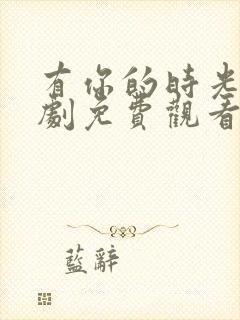 有你的時光
劇免費觀看
藍辭